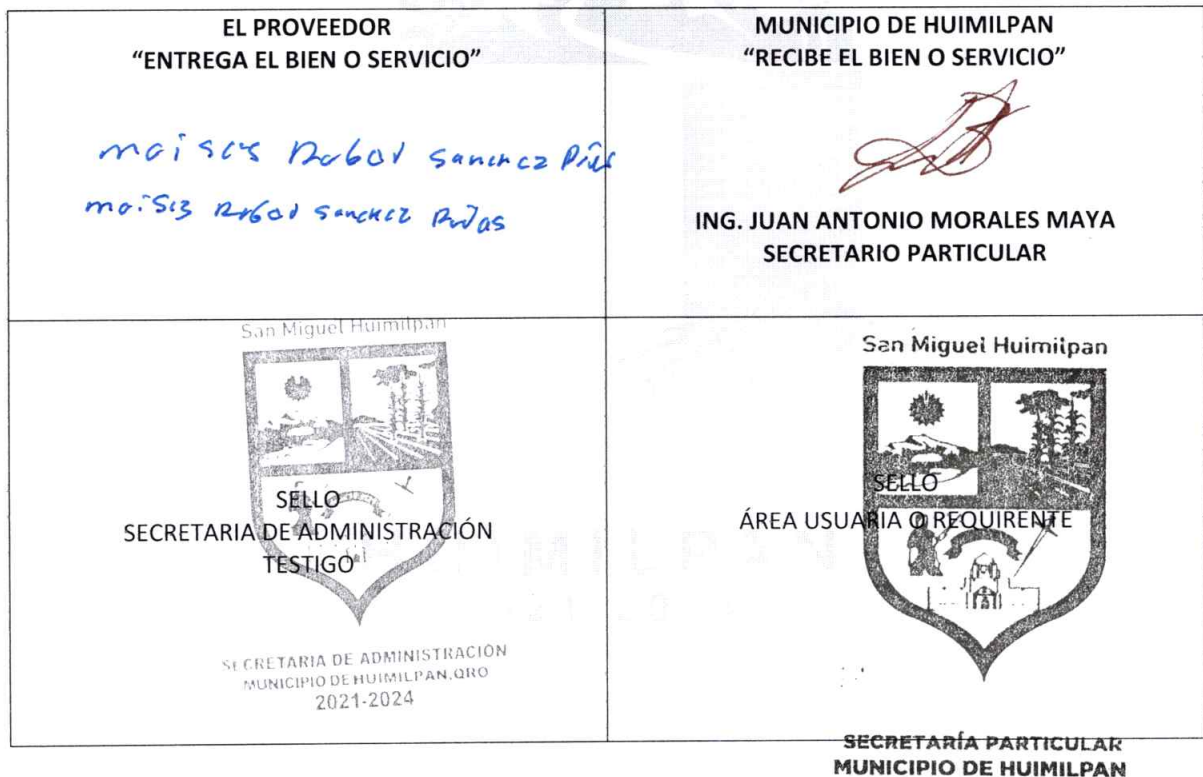 EL PROVEEDOR
“ENTREGA EL BIEN O SERVICIO”
sanchez
sanchez
MUNICIPIO DE HUIMILPAN
“RECIBE EL BIEN O SERVICIO”
ING. JUAN ANTONIO MORALES MAYA
SECRETARIO PARTICULAR
San Miguel Huimilpan
SELLO
SECRETARIA DE ADMINISTRACIÓN
TESTIGO
SECRETARIA DE ADMINISTRACIÓN
MUNICIPIO DE HUIMILPAN, QRO
2021-2024
San Miguel Huimilpan
SELLO
ÁREA USUARIA O REQUIRENTE
SECRETARÍA PARTICULAR
MUNICIPIO DE HUIMILPAN